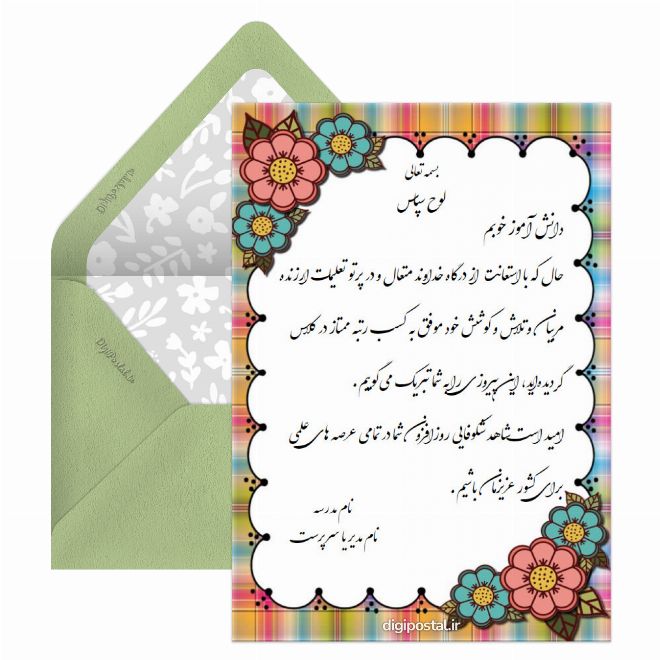 بسمه تعالی
لوح سپاس
دانش آموز خوبم
حال که با استعانت از درگاه خداوند متعال و در پرتو تعلیمات ارزنده
مربیان و تلاش و کوشش خود موفق به کسب رتبه ممتاز در کلاس
گردیده‌اید، این پیروزی را به شما تبریک می‌گوییم.
امید است شاهد شکوفایی روزافزون شما در تمامی عرصه های علمی
برای کشور عزیزمان باشیم.
نام مدرسه
نام مدیر یا سرپرست
digipostal.ir
DigiPostal.ir
DigiPostal.ir